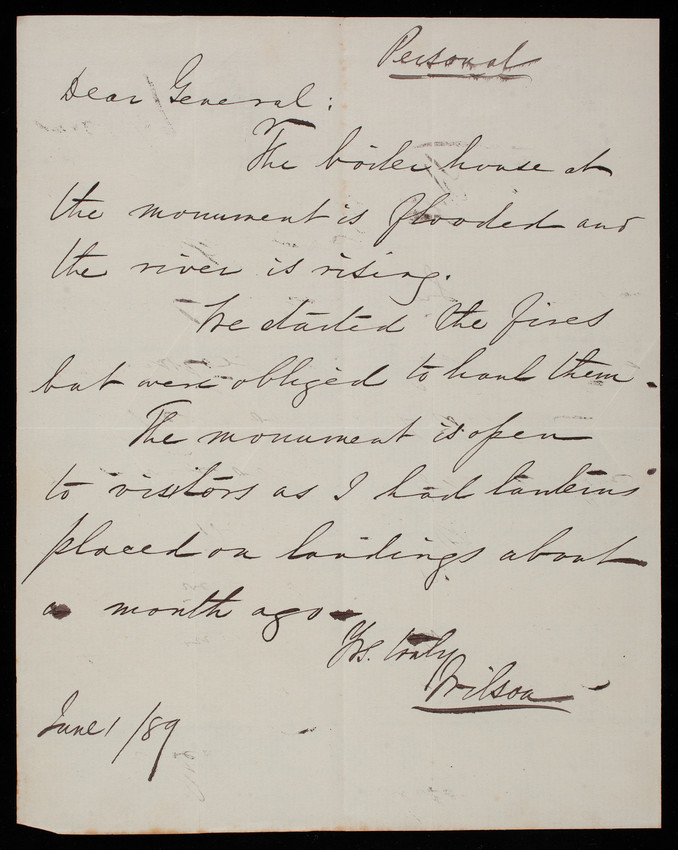 Personal
Dear General:
The boiler house at
the monument is flooded and
the river is rising.
We started the fires
but were obliged to haul them.
The monument is open
to visitors as I had lanterns
placed on landings about
a month ago.
Yrs. truly
Wilson
June 1/89